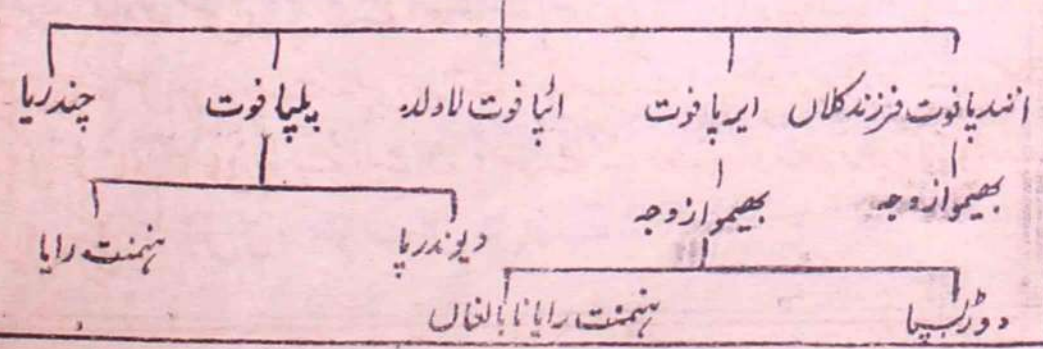 انندپا فوت فرزند کلاں ایرپا فوت ائپا فوت لاولد پلپا فوت چندرپا
بھیموا زوجہ بھیموا زوجہ
دیوندرپا ہنمنت رایا
دوڑبسپا ہنمنت رایا نابالغاں